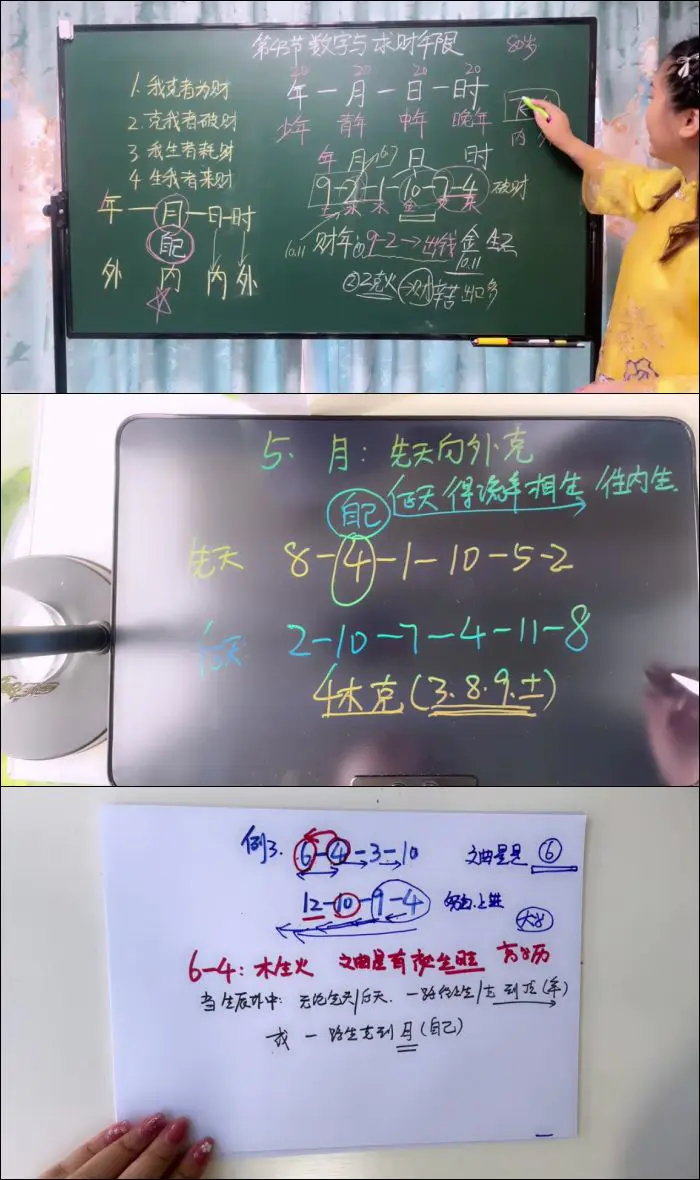 第43节 数字与求财年限
80岁
20 20 20 20
年－月－日－时
少年 青年 中年 晚年
1. 我克者为财
2. 克我者破财
3 我生者耗财
4 生我者来财
年－月－日－时
自己
外 内 内 外
年 月 日 时
9-2-1-10-7-4 破财
10.11 财年 9-2→出钱 金生
10.11
②土克水 财 辛苦
5. 月：先天向外克
自己 后天得流年相生 往内生.
先天 8-4-1-10-5-2
后天 2-10-7-4-11-8
4木克(3.8.9.土)
例3. 6-4-3-10 文曲星是 ⑥
12-10-9-4 努力上进
大学
6-4：木生火 文曲星有被生旺 高学历
当生辰外中：无论先天/后天. 一路往上生/克 到顶(年)
或 一路生克到月(自己)